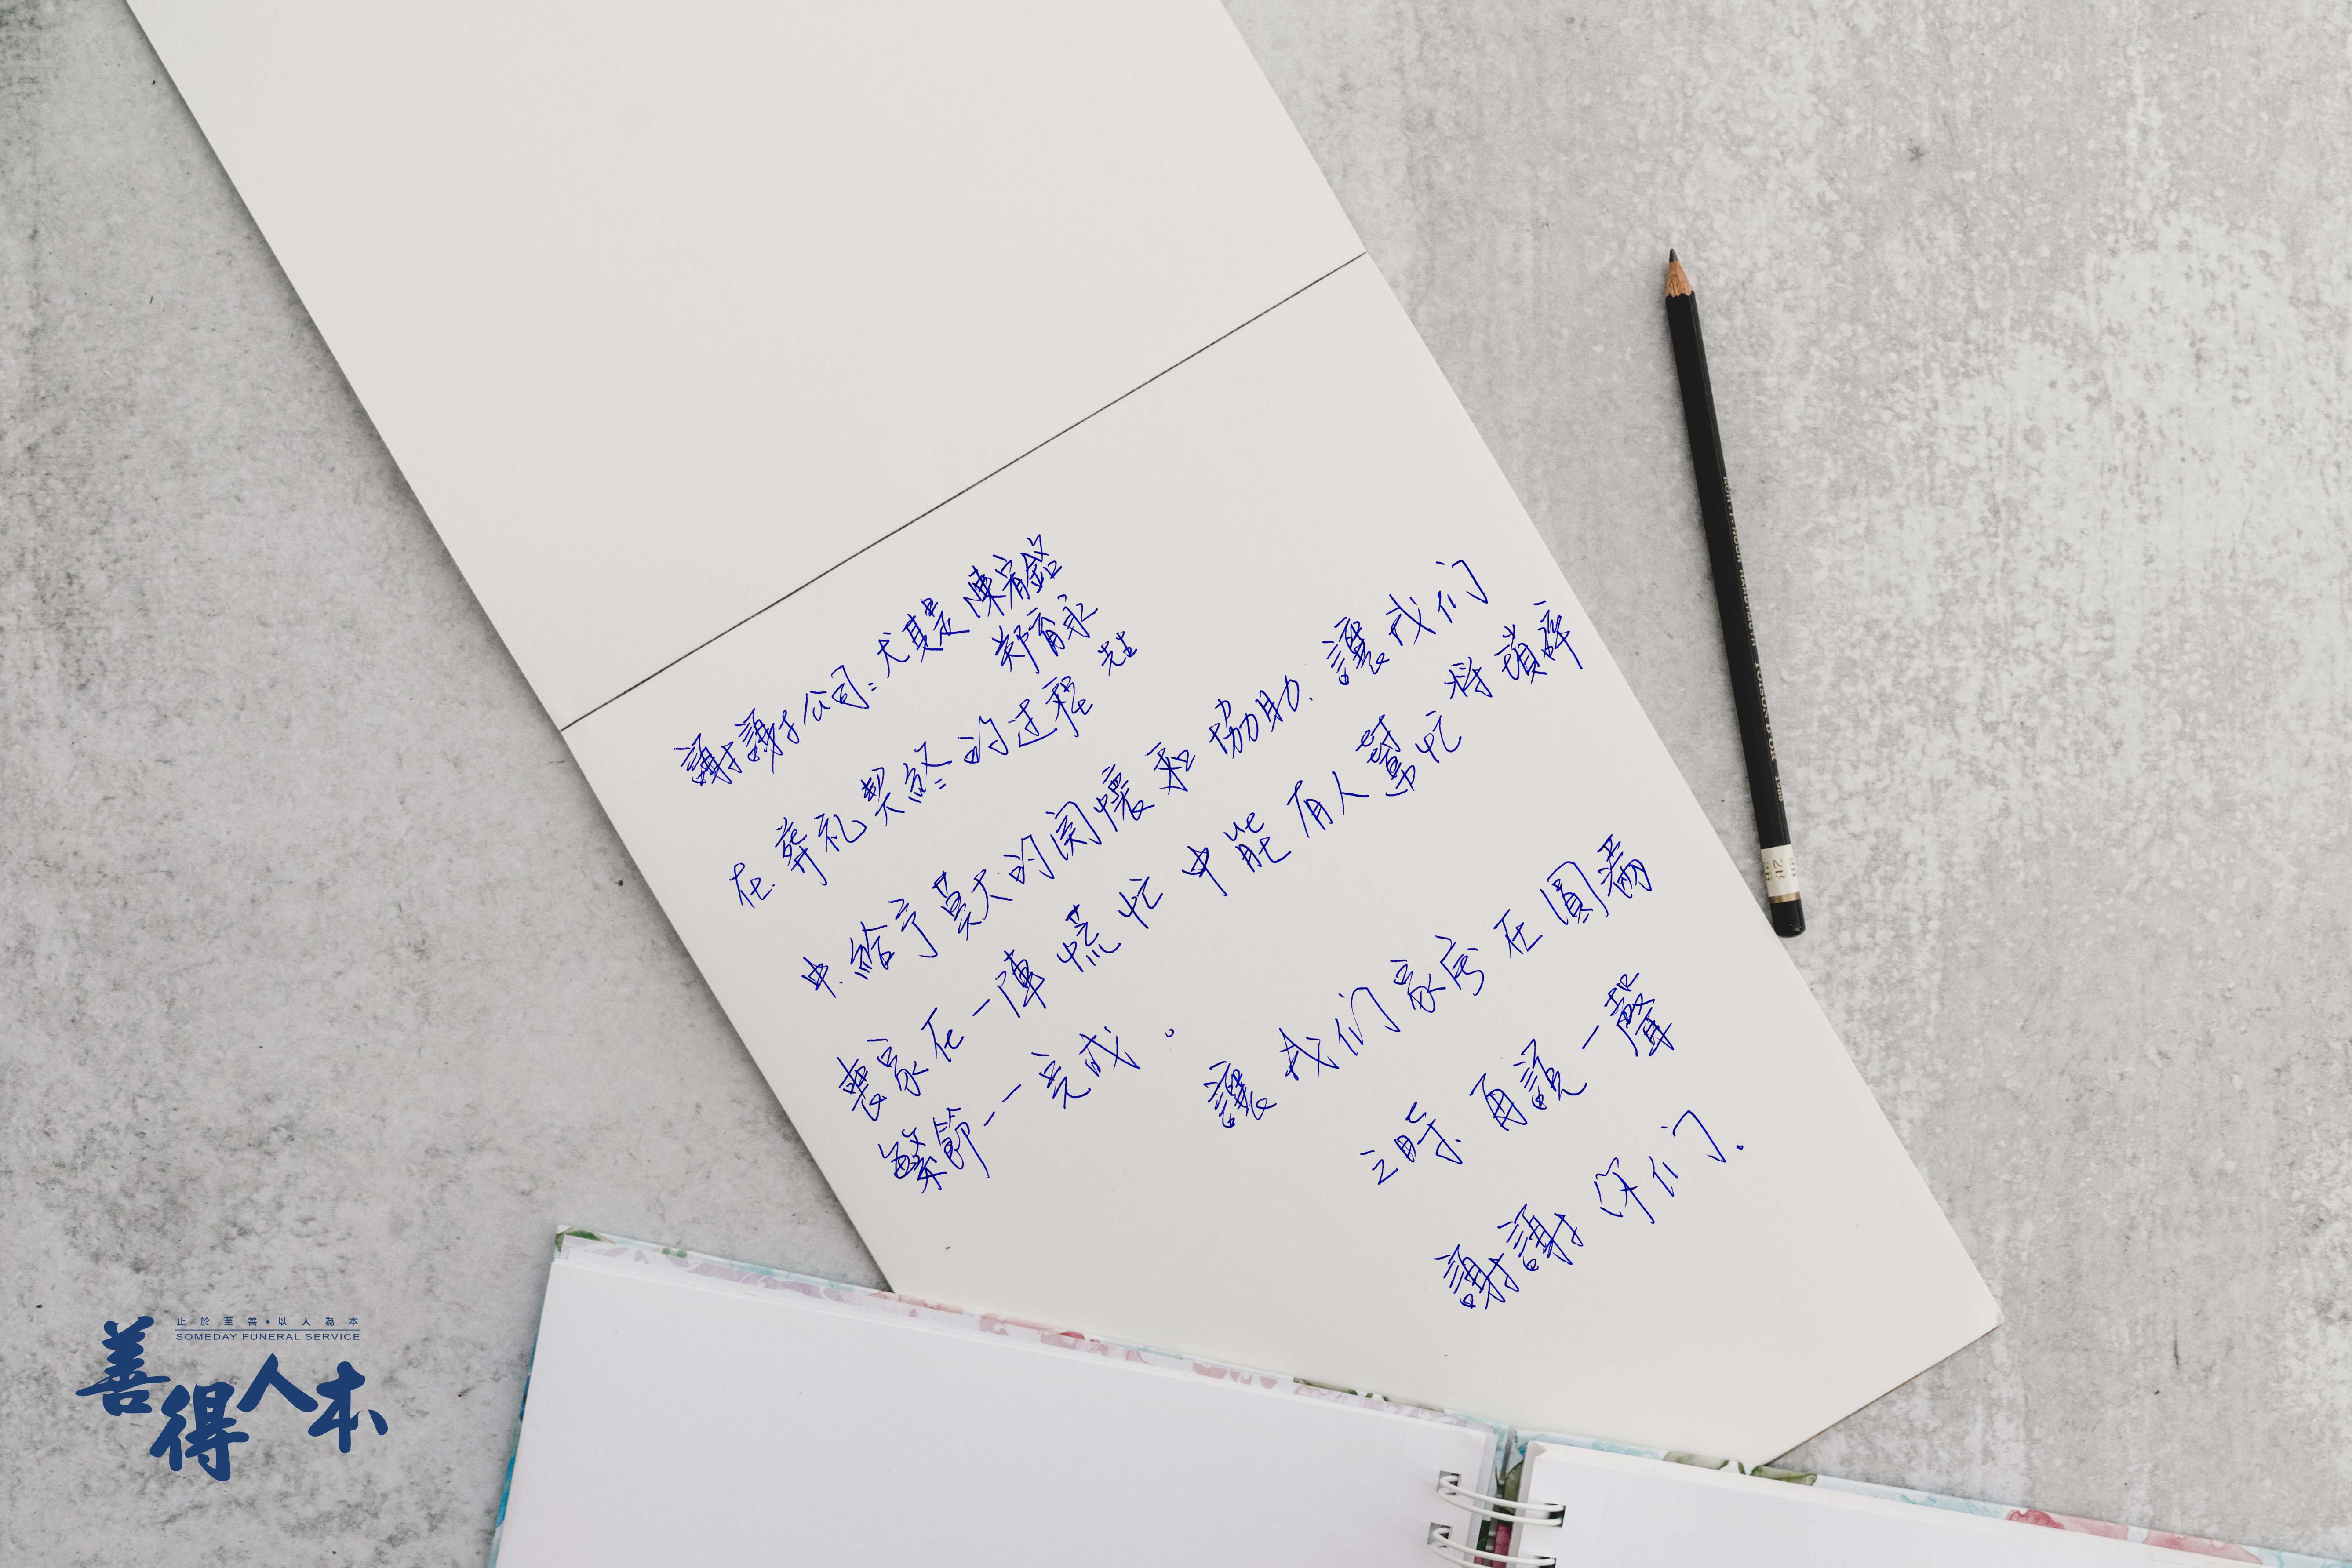 謝謝公司:尤其是 陳宥鎧
郑育永 先生
在葬礼契終的过程
中.給予莫大的関懷和協助.讓我们
喪家在一陣慌忙中能有人幫忙將瑣碎
繁節一一完成。
讓我们家房在圓满
之時.再說一聲
謝謝你们.
止於至善•以人為本
SOMEDAY FUNERAL SERVICE
善得人本
2B